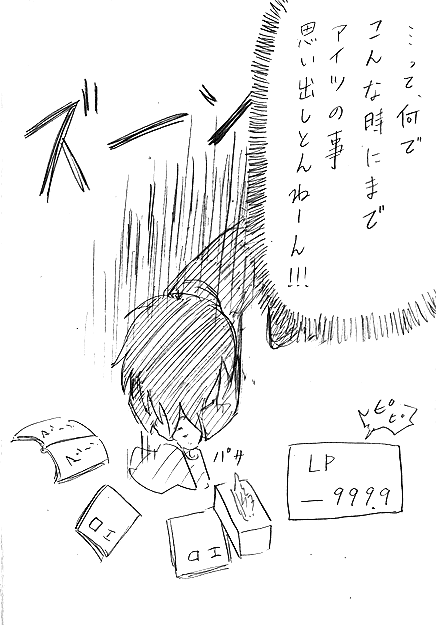 …って、何で
こんな時にまで
アイツの事
思い出しとんねーん!!!
ズーン
ピピ
LP
－999.9
パサ
エロ
エロ